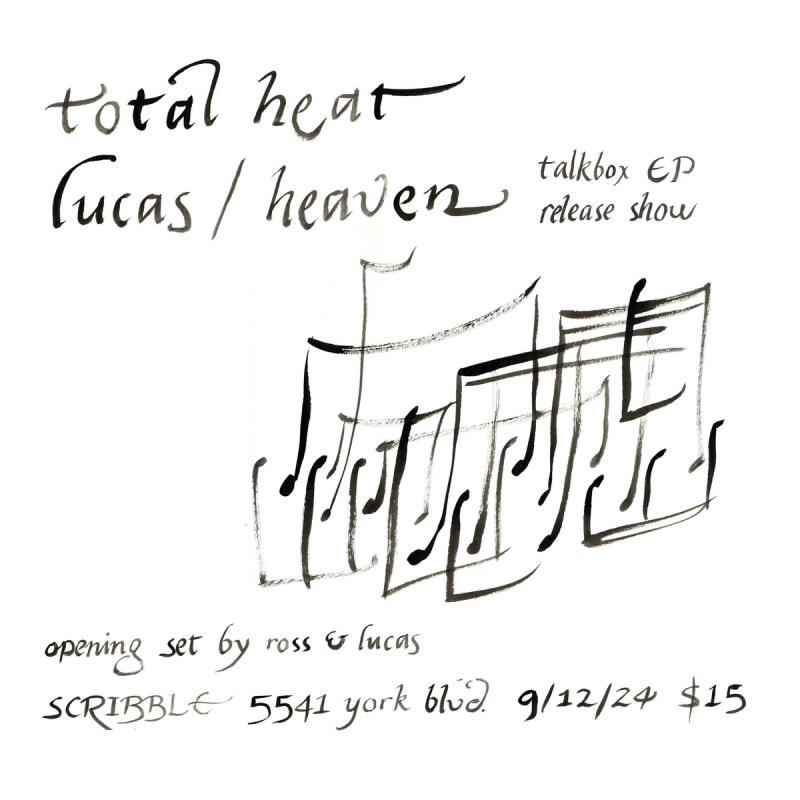 total heat
lucas / heaven
talkbox EP
release show
opening set by ross & lucas
SCRIBBLE 5541 york blvd. 9/12/24 $15